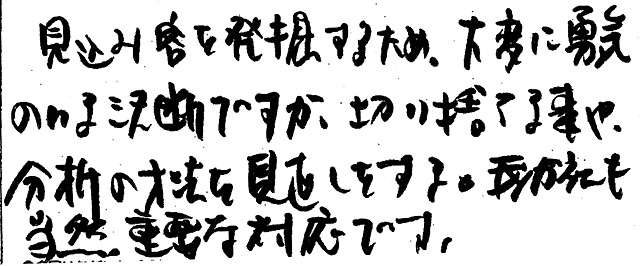 見込み客を発掘するため、大変に勇気
のいる決断ですが、切り捨てる事や、
分析の方法を見直しをする。
当然重要な対応です。